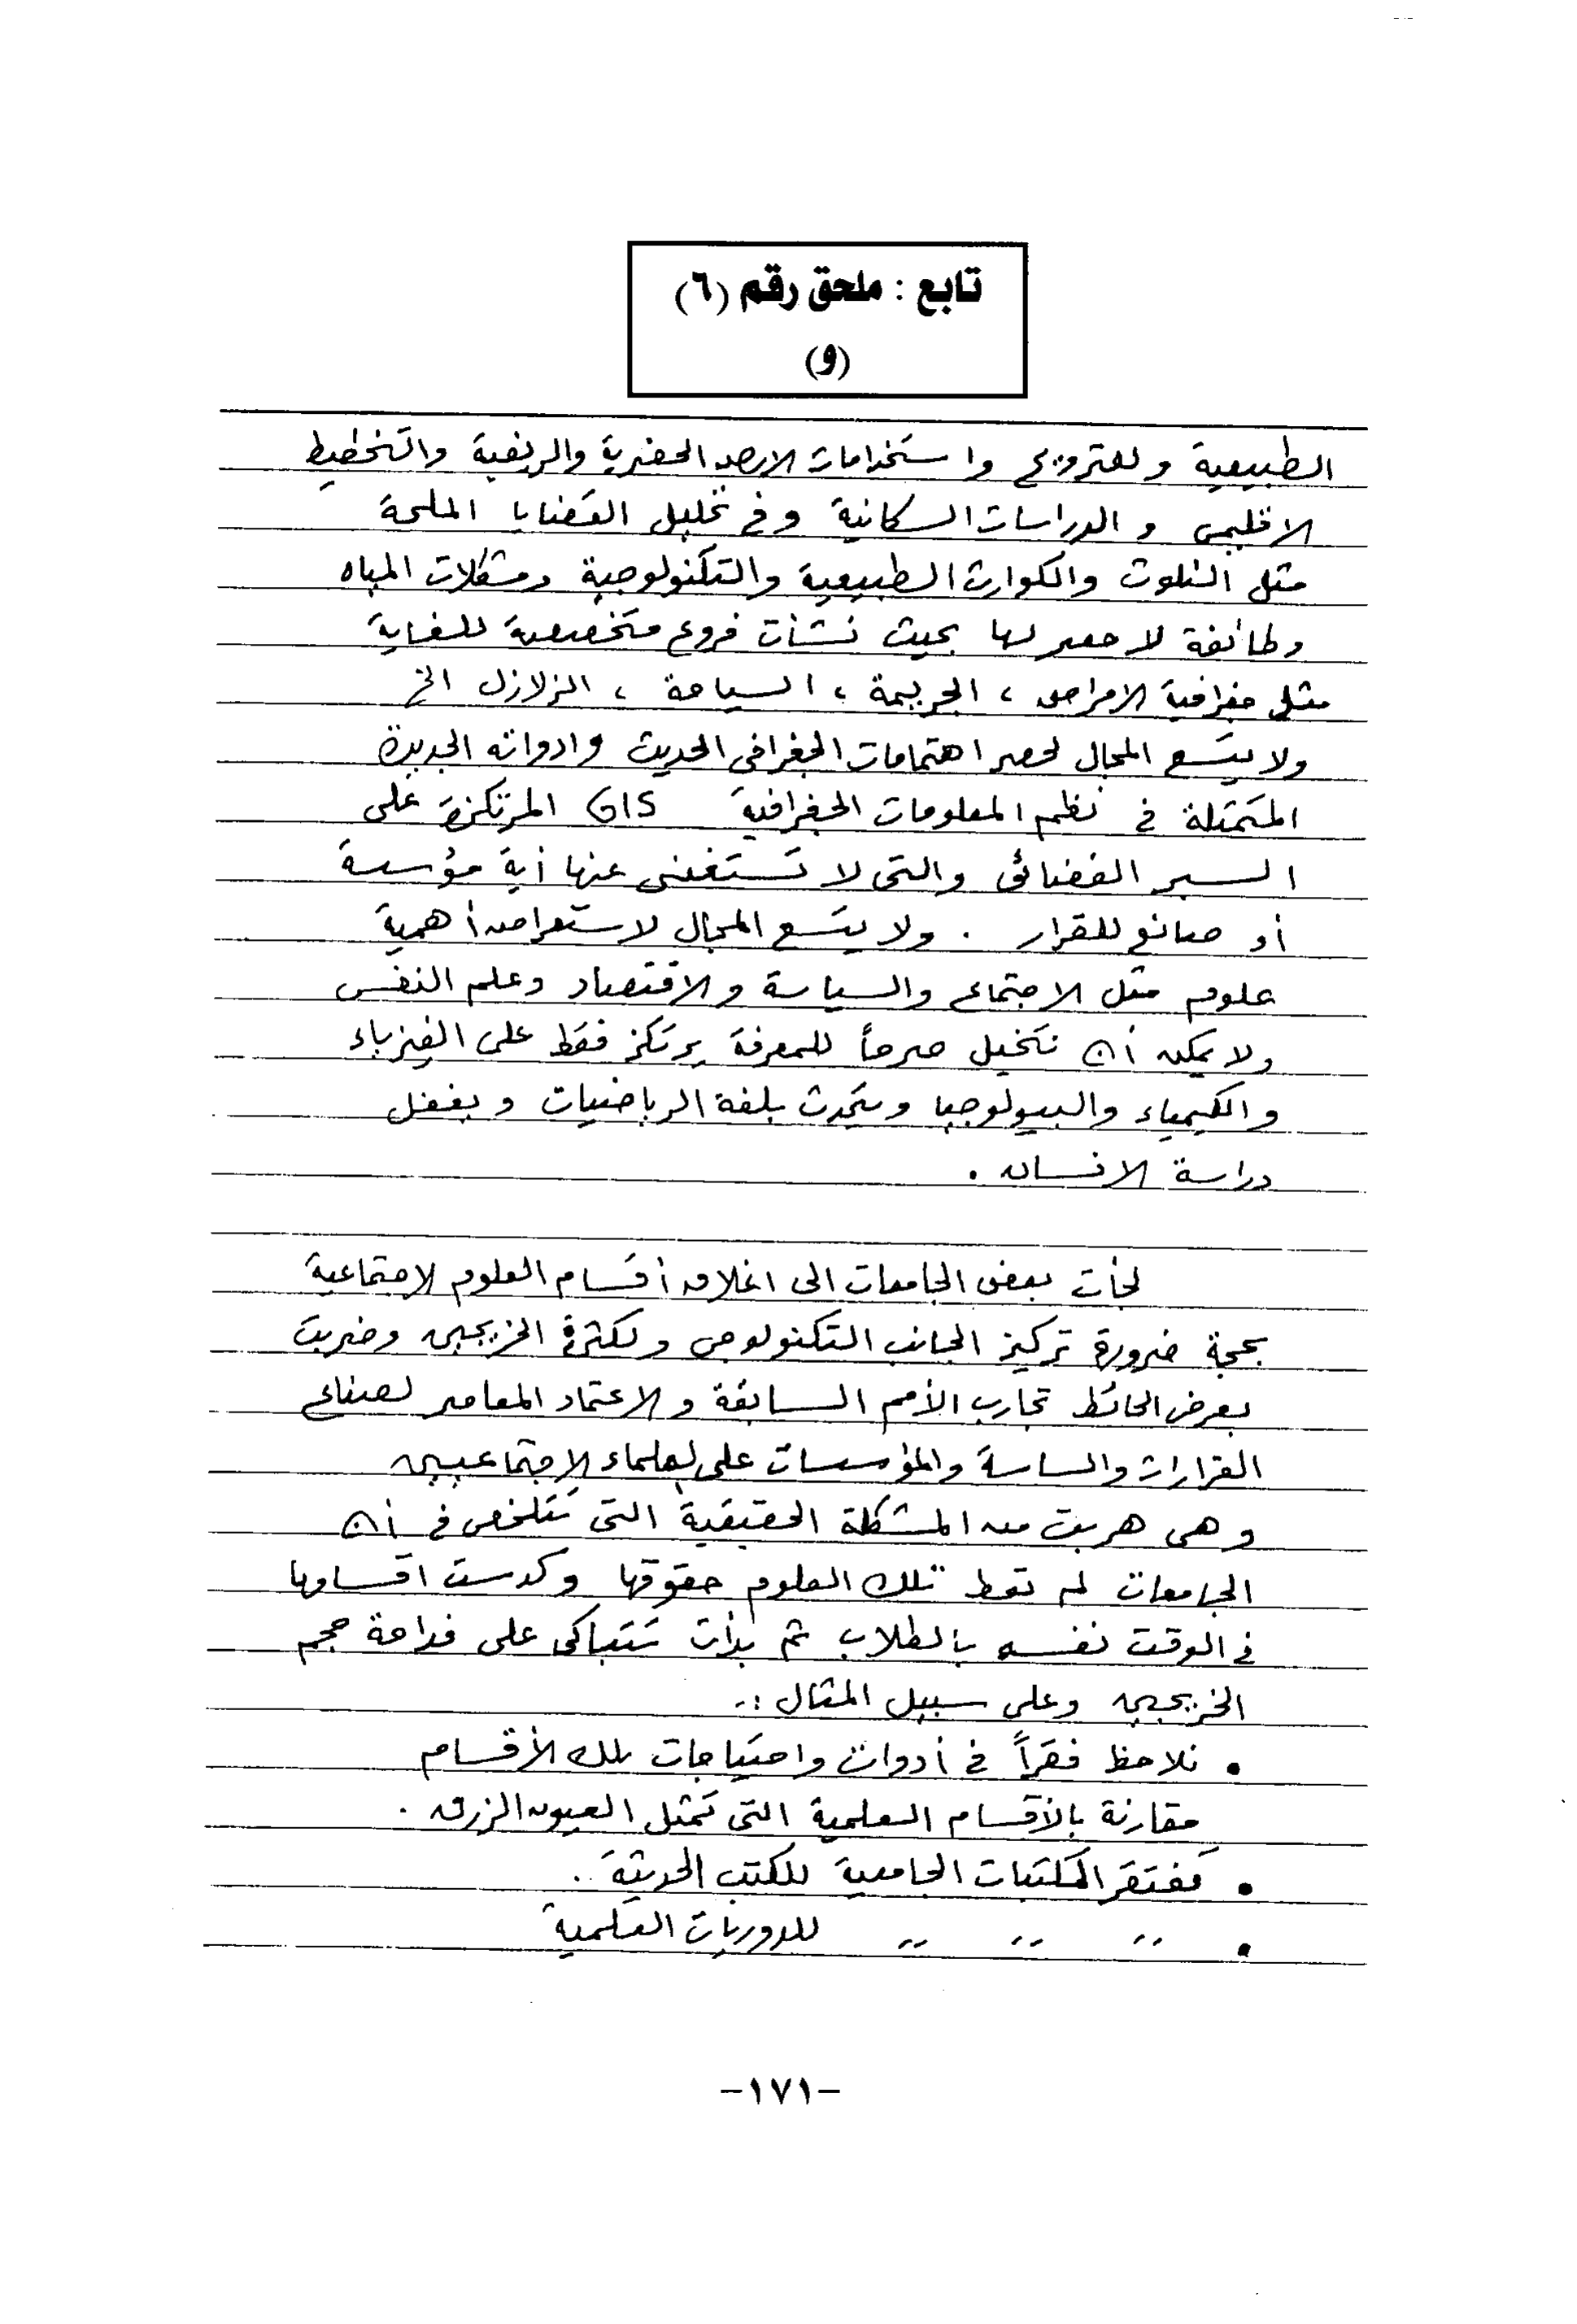 تابع : ملحق رقم (٦)
(و)
الطبيعية وللترويج واستخدامات الارض الحضرية والريفية والتخطيط
الاقليمى والدراسات السكانية وفى تحليل القضايا الملحة
مثل التلوث والكوارث الطبيعية والتكنولوجية ومشكلات المياه
وطائفة لا حصر لها بحيث نشأت فروع متخصصة للغاية
مثل جغرافية الامراض ، الجريمة ، السياحة ، الزلازل الخ
ولا يتسع المجال لحصر اهتمامات الجغرافى الحديث وادواته الجديدة
المتمثلة فى نظم المعلومات الجغرافية GIS المرتكزة على
السبر الفضائى والتى لا تستغنى عنها أية مؤسسة
أو صانع للقرار . ولا يتسع المجال لاستعراض أهمية
علوم مثل الاجتماع والسياسة والاقتصاد وعلم النفس
ولا يمكن أن نتخيل صرحاً للمعرفة يرتكز فقط على الفيزياء
والكيمياء والبيولوجيا ويتحدث بلغة الرياضيات ويغفل
دراسة الانسان .
لجأت بعض الجامعات الى اغلاق أقسام العلوم الاجتماعية
بحجة ضرورة تركيز الجانب التكنولوجى ولكثرة الخريجين وضربت
بعرض الحائط تجارب الأمم السابقة والاعتماد المعاصر لصناع
القرارات والساسة والمؤسسات على العلماء الاجتماعيين
وهى هربت من المشكلة الحقيقية التى تتلخص فى أن
الجامعات لم تعط تلك العلوم حقوقها وكدست اقسامها
فى الوقت نفسه بالطلاب ثم بدأت تتباكى على فداحة حجم
الخريجين وعلى سبيل المثال :-
• نلاحظ فقراً فى أدوات واحتياجات تلك الأقسام
مقارنة بالأقسام العلمية التى تمثل العيون الزرق .
• تفتقر المكتبات الجامعية للكتب الحديثة ..
• ,, ,, ,, للدوريات العلمية
-١٧١-